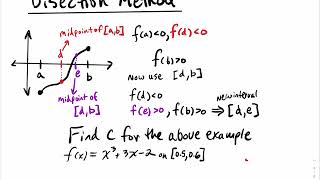 Bisection Method
midpoint of [a,b]
f(a)<0, f(d)<0
f(b)>0
Now use [d,b]
d
a
e
b
midpoint of
[d,b]
f(d)<0
f(e)>0, f(b)>0 ⇒ [d,e]
new interval
Find C for the above example
f(x) = x³+3x-2 on [0.5,0.6]